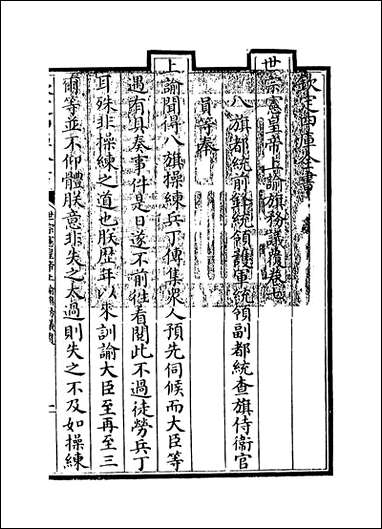 欽定四庫全書
世宗憲皇帝上諭旗務議覆卷七
八旗都統前鋒統領護軍統領副都統查旗侍衛官
員等奏
上諭聞得八旗操練兵丁傳集衆人預先伺候而大臣等
遇有具奏事件是日遂不前往看閱此不過徒勞兵丁
耳殊非操練之道也朕歷年以來訓諭大臣至再至三
爾等並不仰體朕意非失之太過則失之不及如操練
世宗憲皇帝上諭旗務議覆